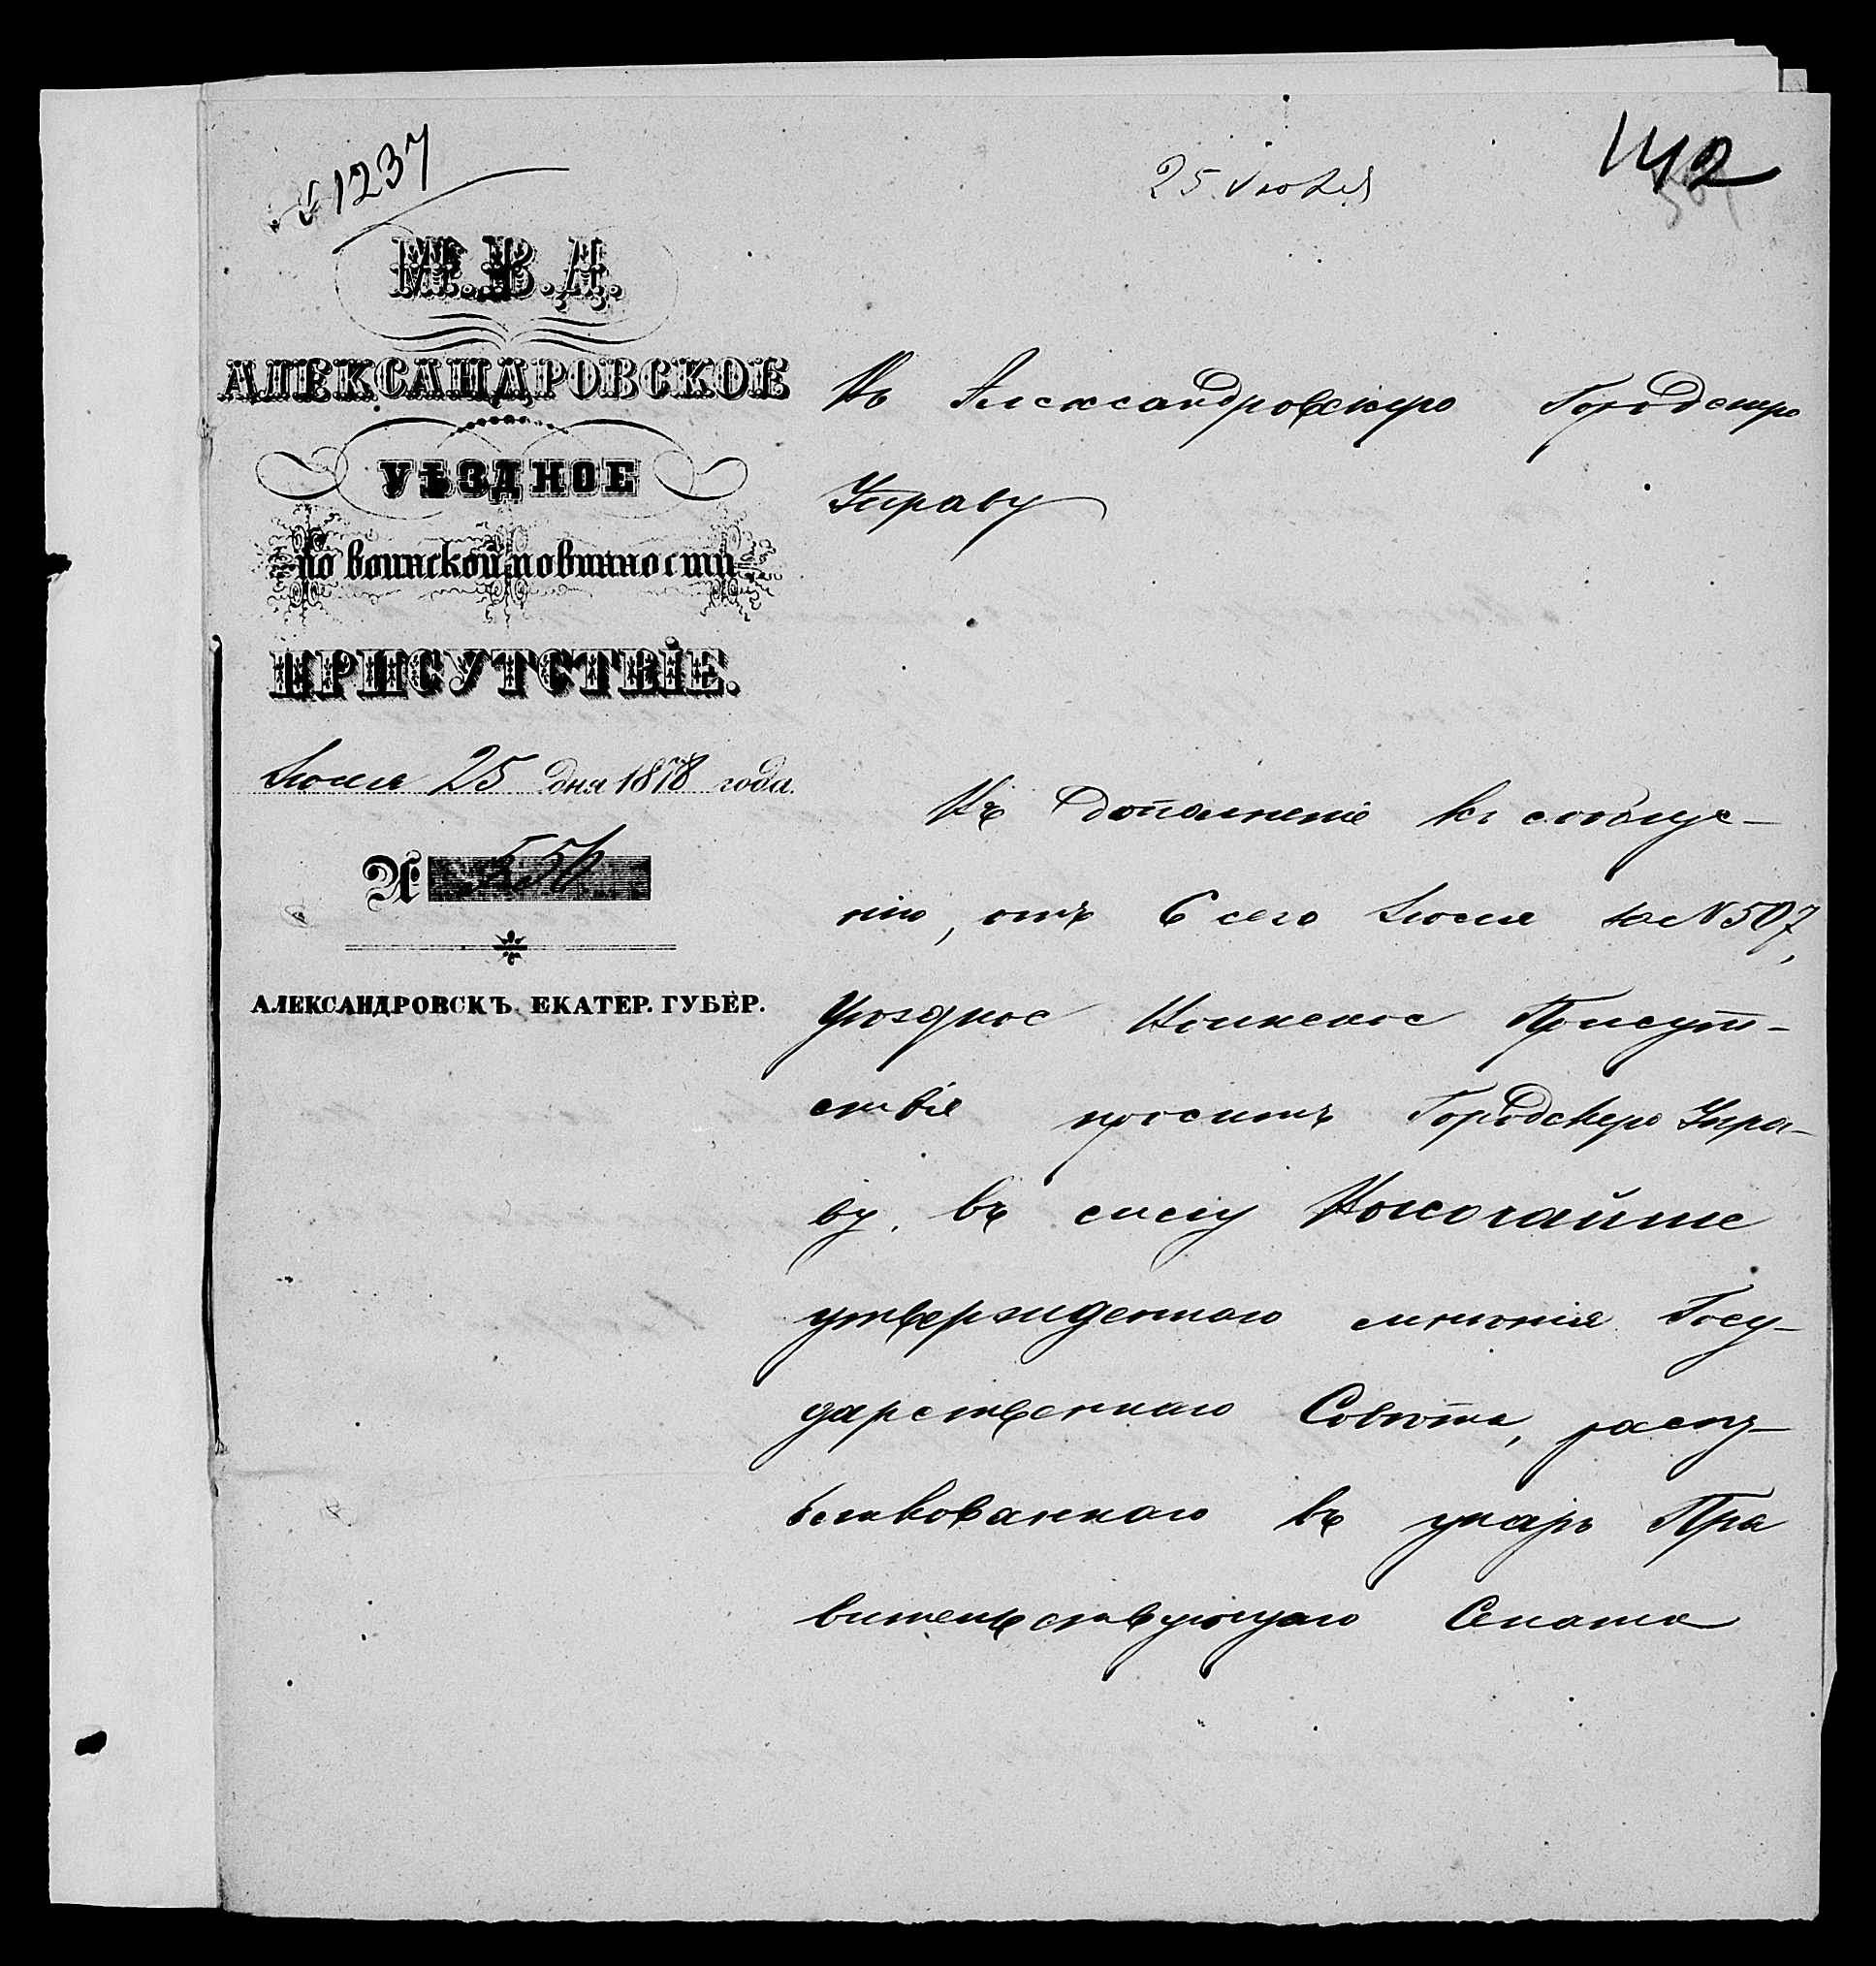 № 1237
25 Июля
142
М.В.Д.
АЛЕКСАНДРОВСКОЕ
УѢЗДНОЕ
по воинской повинности
ПРИСУТСТВІЕ.
Іюля 25 дня 1878 года.
№ 556
АЛЕКСАНДРОВСКЪ. ЕКАТЕР. ГУБЕР.
Въ Александровскую Городскую
Управу
Въ дополненіе къ сообще-
нію, отъ 6 сего Іюля за № 507,
Уѣздное Воинское Присут-
ствіе проситъ Городскую Упра-
ву, въ силу Высочайше
утвержденнаго мнѣнія Госу-
дарственнаго Совѣта, распу-
бликованнаго въ указѣ Пра
вительствующаго Сената